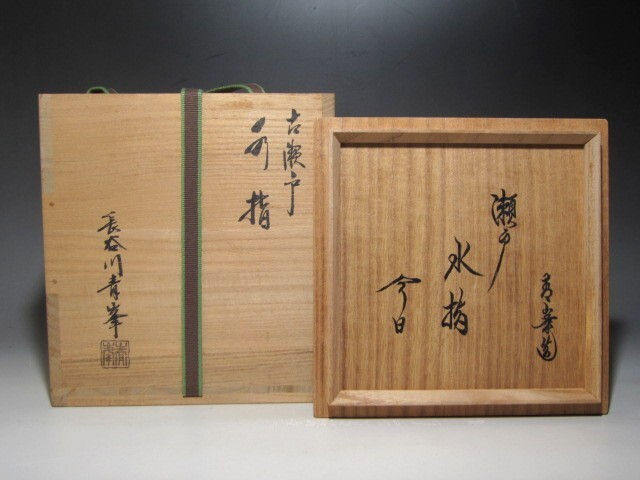 古瀬戸
水指
長谷川青峯
青峯造
瀬戸
水指
今日